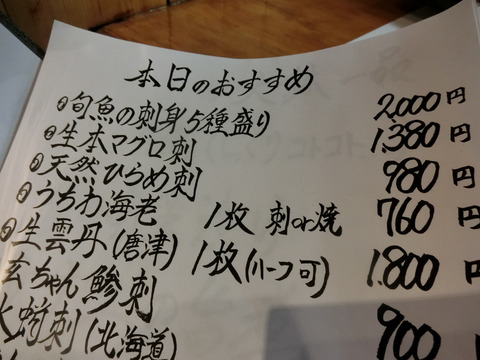 本日のおすすめ
旬魚の刺身5種盛り 2,000円
生本マグロ刺 1,380円
天然ひらめ刺 980円
うちわ海老 1枚 刺or焼 760円
生雲丹(唐津) 1枚(ハーフ可) 1,800円
玄ちゃん鯵刺 900円
水蛸刺(北海道)